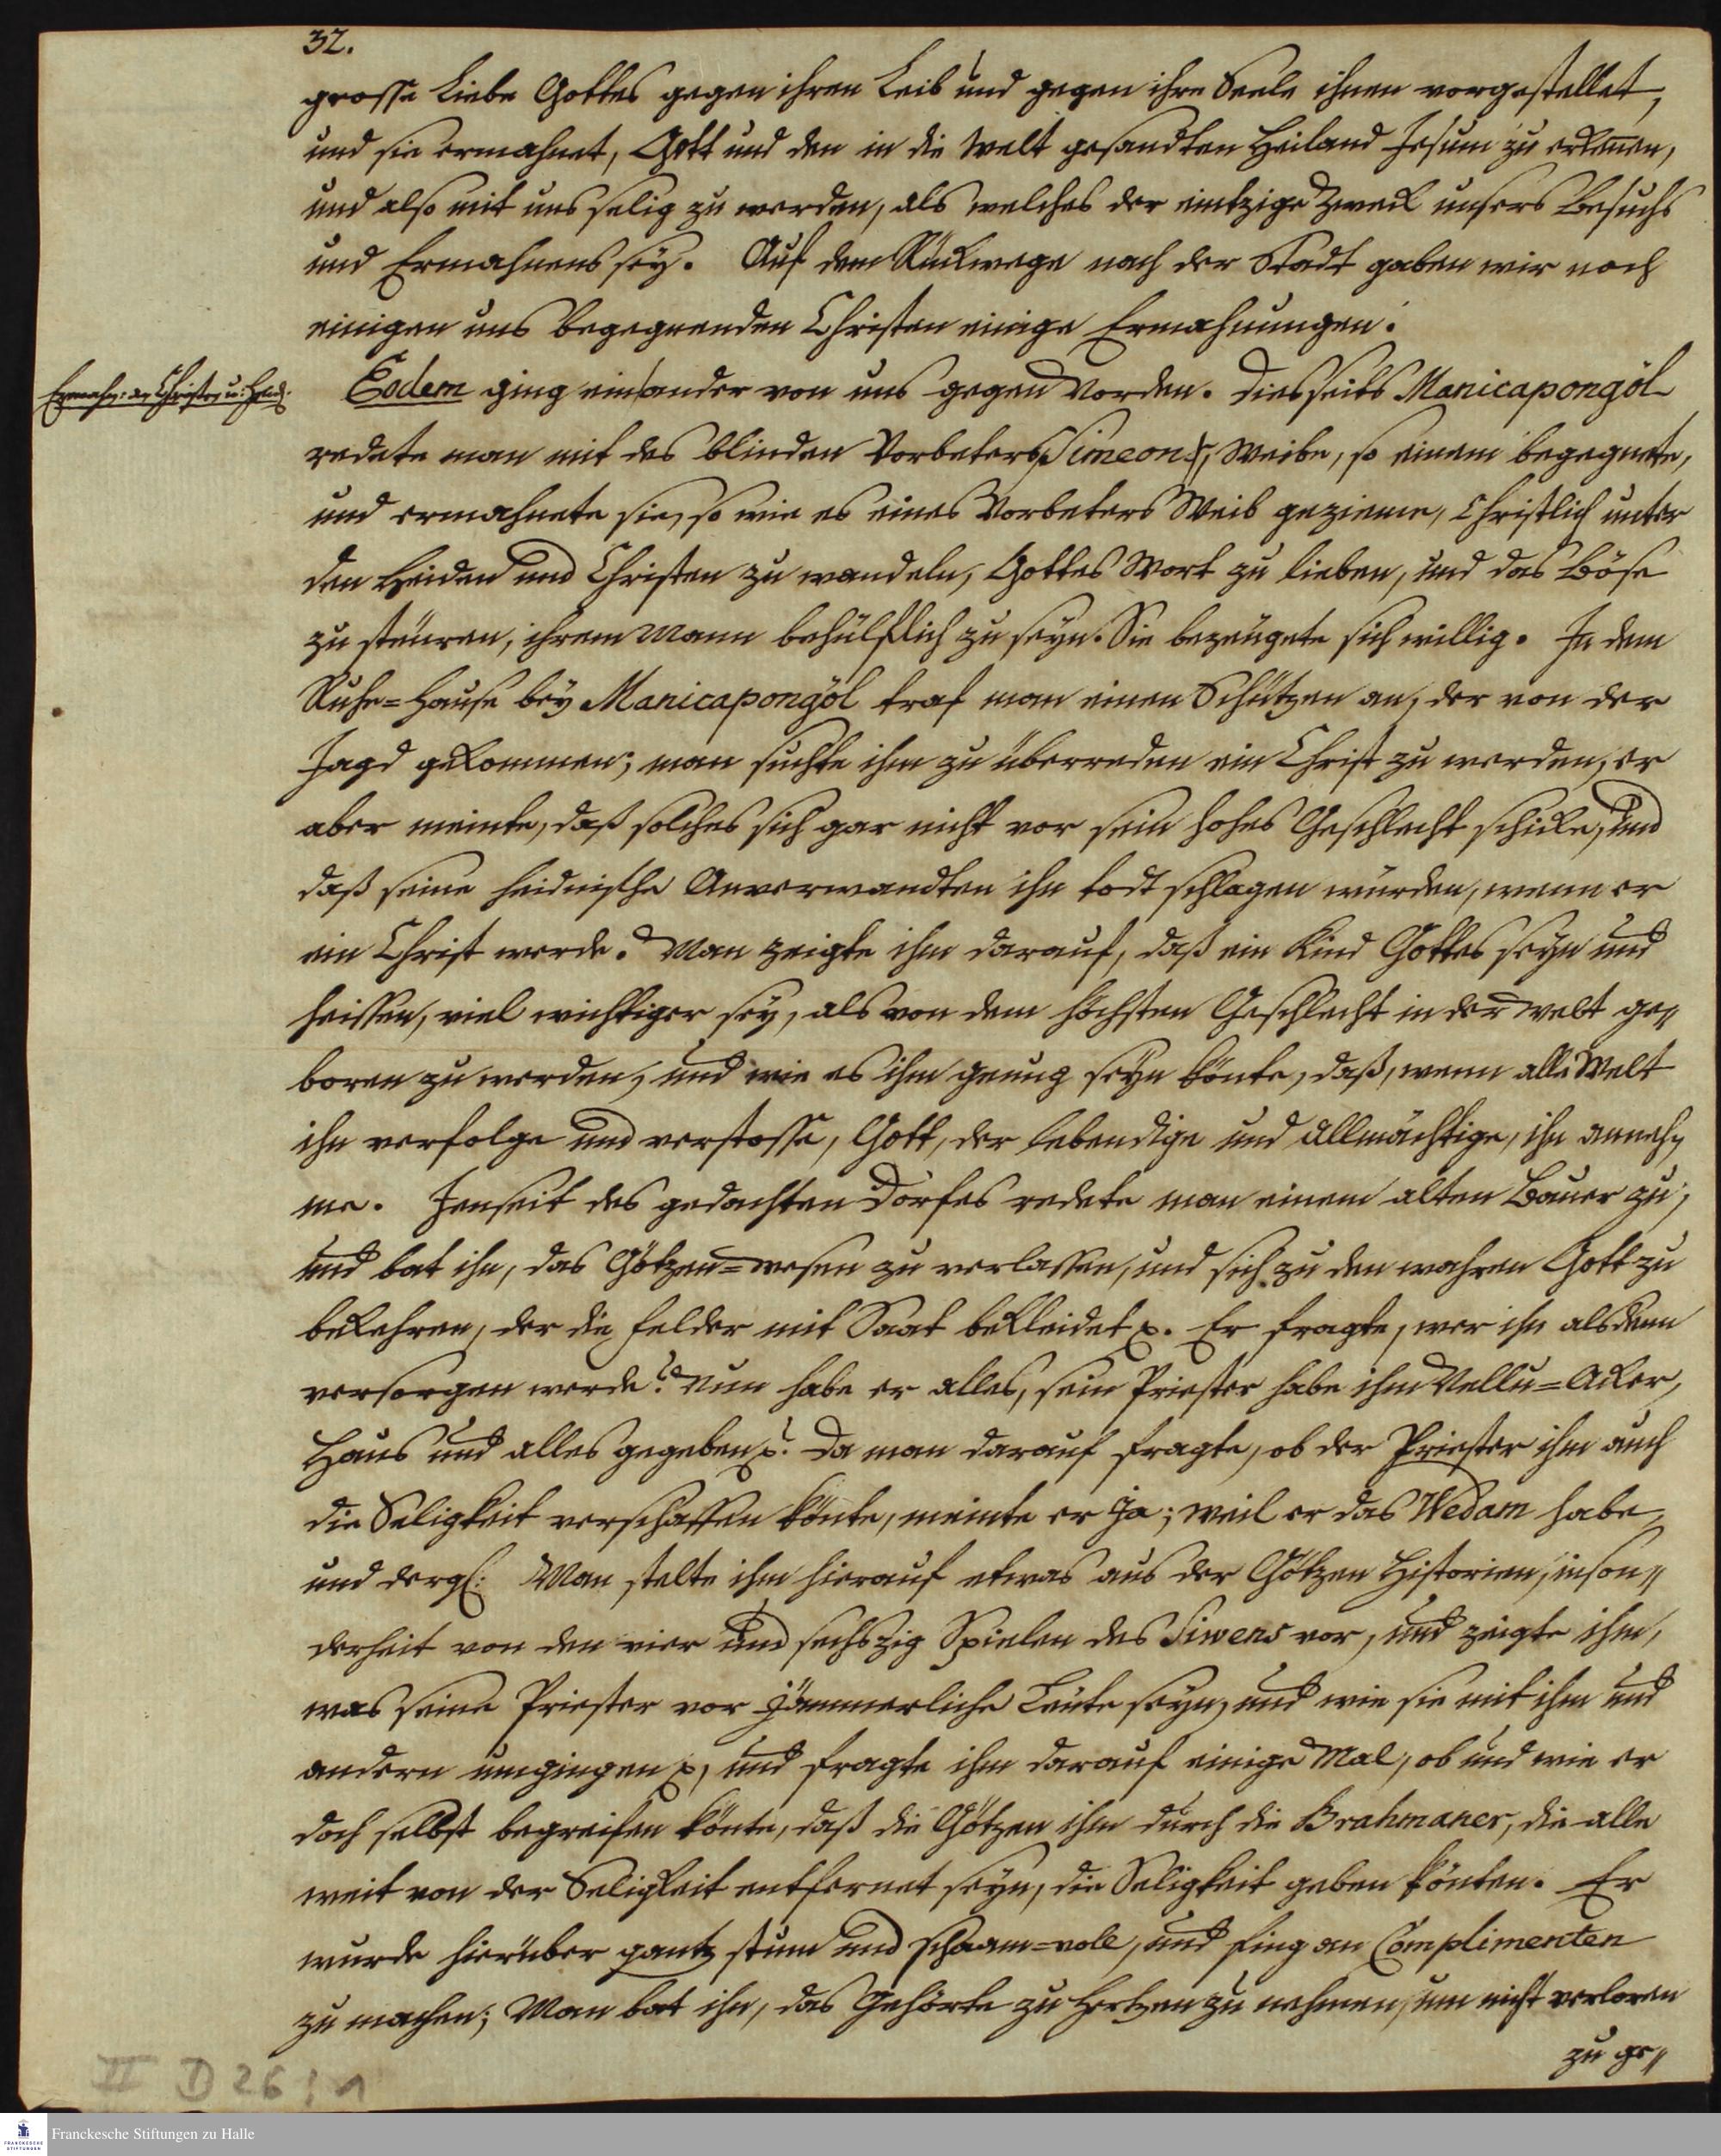 32.
grosse Liebe Gottes gegen ihren Leib und gegen ihre Seele ihnen vorgestellet,
und sie ermahnet, Gott und den in die Welt gesandten Heiland Jesum zu erkennen,
und also mit uns selig zu werden, als welches der eintzige Zweck unsers Besuchs
und Ermahnens sey. Auf dem Rückwege nach der Stadt gaben wir noch
einigen uns begegnenden Christen einige Ermahnungen.
Ermahn: an Christen u: Heid.
Eodem ging ein ander von uns gegen Norden. Diesseits Manicapongöl
redete man mit des blinden Vorbeters, Simeons, Weibe, so einem begegnete,
und ermahnete sie, so wie es eines Vorbeters Weib gezieme, Christlich unter
den Heiden und Christen zu wandeln, Gottes Wort zu lieben, und das Böse
zu steuren, ihrem Mann behülflich zu seyn. Sie bezeugete sich willig. In dem
Ruhe-Hause bey Manicapongöl traf man einen Schützen an, der von der
Jagd gekommen; man suchte ihn zu überreden ein Christ zu werden, er
aber meinte, daß solches sich gar nicht vor sein hohes Geschlecht schicke, und
daß seine heidnische Anverwandten ihn todt schlagen würden, wenn er
ein Christ werde. Man zeigte ihm darauf, daß ein Kind Gottes seyn und
heissen, viel wichtiger sey, als von dem höchsten Geschlecht in der Welt ge„
boren zu werden, und wie es ihm genug seyn könte, daß, wenn alle Welt
ihn verfolge und verstosse, Gott, der lebendige und allmächtige, ihn anneh„
me. Jenseit des gedachten Dorfes redete man einem alten Bauer zu,
und bat ihn, das Götzen-wesen zu verlassen, und sich zu den wahren Gott zu
bekehren, der die Felder mit Saat bekleidet p. Er fragte, wer ihn alsdenn
versorgen werde? Nun habe er alles, sein Priester habe ihm Nellu-Acker,
Haus und alles gegeben p. Da man darauf fragte, ob der Priester ihm auch
die Seligkeit verschaffen könte, meinte er ja; weil er das Wedam habe,
und dergl: Man stelte ihm hierauf etwas aus der Götzen Historien, inson„
derheit von den vier und sechszig Spielen des Siwens vor, und zeigte ihm,
was seine Priester vor jämmerliche Leute seyn, und wie sie mit ihm und
andern umgingen p, und fragte ihm darauf einige Mal, ob und wie er
doch selbst begreifen könte, daß die Götzen ihm durch die Brahmaner, die alle
weit von der Seligkeit entfernet seyn, die Seligkeit geben könten. Er
wurde hierüber gantz stum und schaam-voll, und fing an Complimenten
zu machen; Man bat ihn, das Gehörte zu Hertzen zu nehmen, um nicht verloren
zu ge„
II D 26 : 1
FRANCKESCHE STIFTUNGEN
Franckesche Stiftungen zu Halle